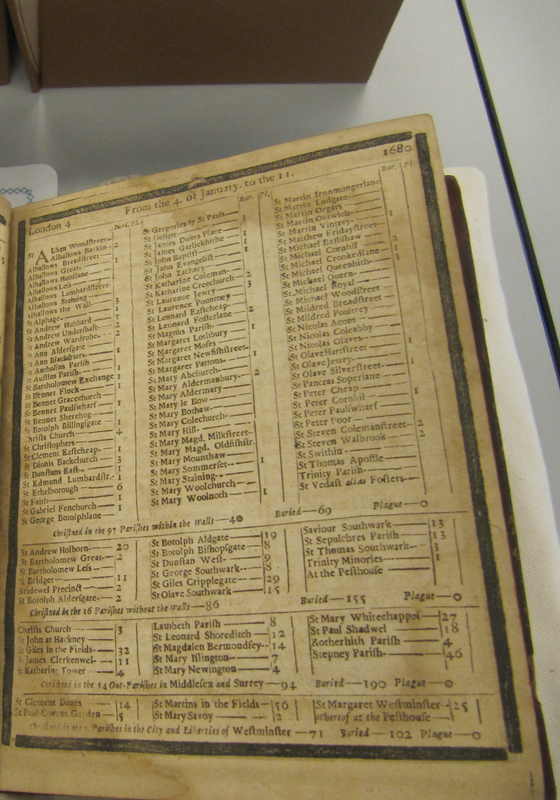 London 4 From the 4. of January, to the 11. 1680
Bur. Pl.
St Alban Woodstreet
Alhallows Barkin 2
Alhallows Breadstreet 1
Alhallows Great
Alhallows Honilane
Alhallows Less
Alhallows Lumbardstreet
Alhallows Staining
Alhallows the Wall 3
St Alphage 1
St Andrew Hubbard 1
St Andrew Undershaft 2
St Andrew Wardrobe 2
St Ann Aldersgate 1
St Ann Blackfriers
St Antholins Parish
St Austins Parish
St Bartholomew Exchange 1
St Bennet Finck 1
St Bennet Gracechurch
St Bennet Paulswharf 1
St Bennet Sherehog
St Botolph Billingsgate 1
Christs Church 4
St Christophers
St Clement Eastcheap 1
St Dionis Backchurch 3
St Dunstans East 1
St Edmund Lumbardstr. 1
St Ethelborough 6
St Faith 1
St Gabriel Fenchurch 1
St George Botolphlane
Bur. Pl.
St Gregories by St Pauls
St Hellen
St James Dukes Place 1
St James Garlickhithe 1
St John Baptist
St John Evangelist
St John Zachary
St Katharine Coleman
St Katharine Creechurch 2
St Laurence Jewry 3
St Laurence Pountney
St Leonard Eastcheap
St Leonard Fosterlane 2
St Magnus Parish
St Margaret Lothbury 1
St Margaret Moses
St Margaret Newfishstreet
St Margaret Pattons 1
St Mary Abchurch
St Mary Aldermanbury 2
St Mary Aldermary
St Mary le Bow
St Mary Bothaw
St Mary Colechurch
St Mary Hill
St Mary Magd. Milkstreet
St Mary Magd. Oldfishstr.
St Mary Mounthaw
St Mary Sommerset 1
St Mary Staining
St Mary Woolchurch
St Mary Woolnoth 1
Bur. Pl.
St Martin Ironmongerlane
St Martin Ludgate
St Martin Orgars
St Martin Outwich
St Martin Vintrey 1
St Matthew Fridaystreet
St Michael Bassishaw
St Michael Cornhil 2
St Michael Crookedlane 1
St Michael Queenhith 3
St Michael Quern
St Michael Royal
St Michael Woodstreet
St Mildred Breadstreet
St Mildred Poultrey
St Nicolas Acons
St Nicolas Coleabby
St Nicolas Olaves
St Olave Hartstreet 1
St Olave Jewry
St Olave Silverstreet 1
St Pancras Soperlane
St Peter Cheap
St Peter Cornhil 1
St Peter Paulswharf
St Peter Poor
St Steven Colemanstreet 2
St Steven Walbrook 2
St Swithin
St Thomas Apostle
Trinity Parish
St Vedast alias Fosters
Christned in the 97 Parishes within the Walls 40 Buried 69 Plague 0
St Andrew Holborn 20
St Bartholomew Great 2
St Bartholomew Less
St Bridget 11
Bridewel Precinct 2
St Botolph Aldersgate 2
St Botolph Aldgate 19
St Botolph Bishopsgate 8
St Dunstan West 9
St George Southwark 8
St Giles Cripplegate 29
St Olave Southwark 15
Saviour Southwark 13
St Sepulchres Parish 13
St Thomas Southwark 3
Trinity Minories 1
At the Pesthouse
Christned in the 16 Parishes without the Walls 86 Buried 155 Plague 0
Christs Church 3
St John at Hackney
St Giles in the Fields 32
St James Clerkenwel 11
St Katharine Tower 4
Lambeth Parish 8
St Leonard Shoreditch 12
St Magdalen Bermondsey 14
St Mary Islington 7
St Mary Newington 4
St Mary Whitechappel 27
St Paul Shadwel 18
Rotherhith Parish 4
Stepney Parish 46
Christned in the 14 Out-Parishes in Middlesex and Surrey 94 Buried 190 Plague 0
St Clement Danes 14
St Paul Covent Garden 5
St Martins in the Fields 56
St Mary Savoy 2
St Margaret Westminster 25
whereof at the Pesthouse
Christned in the Parishes in the City and Liberties of Westminster 71 Buried 102 Plague 0